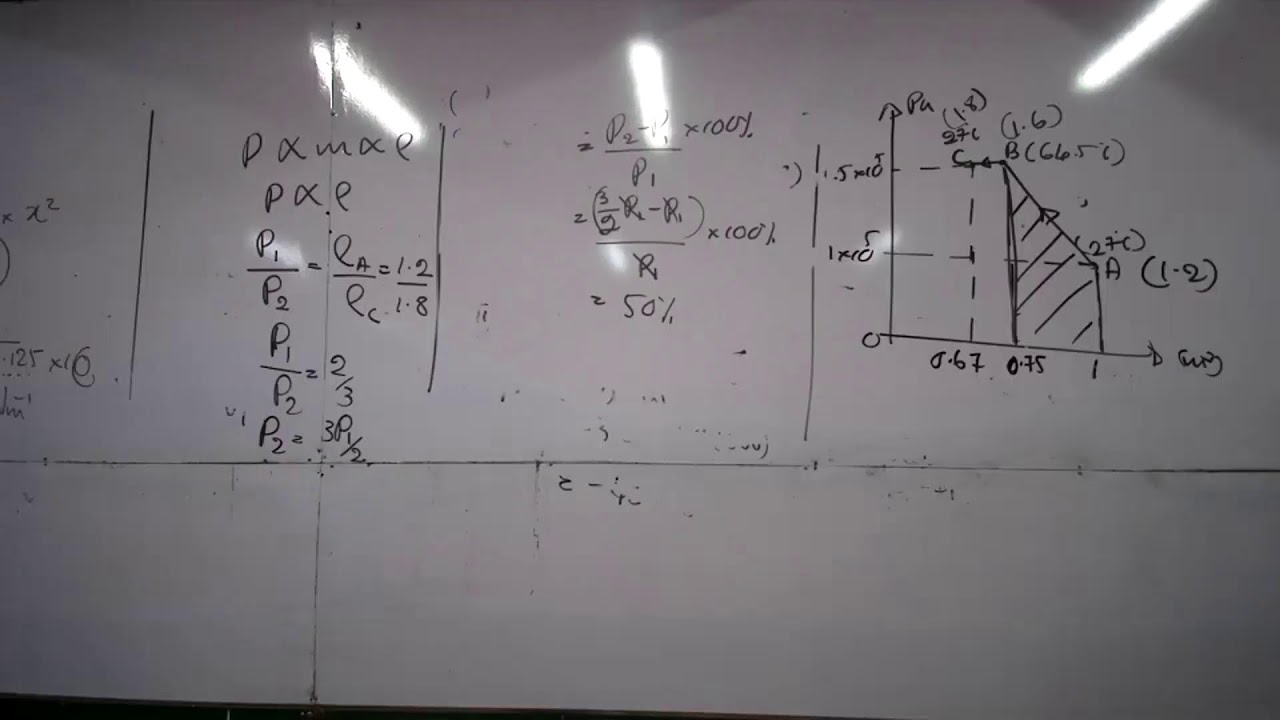 × x²
.125 ×10
Jm⁻¹
P ∝ m ∝ ρ
P ∝ ρ
P₁/P₂ = ρA/ρC = 1.2/1.8
P₁/P₂ = 2/3
P₂ = 3P₁/2
ii
= (P₂ - P₁)/P₁ × 100%
= (3/2 P₁ - P₁)/P₁ × 100%
= 50%
Pa (1.8)
27c (1.6)
C B (66.5c)
1.5×10⁵
(27c)
1×10⁵
A (1.2)
0
0.67 0.75 1 (m³)